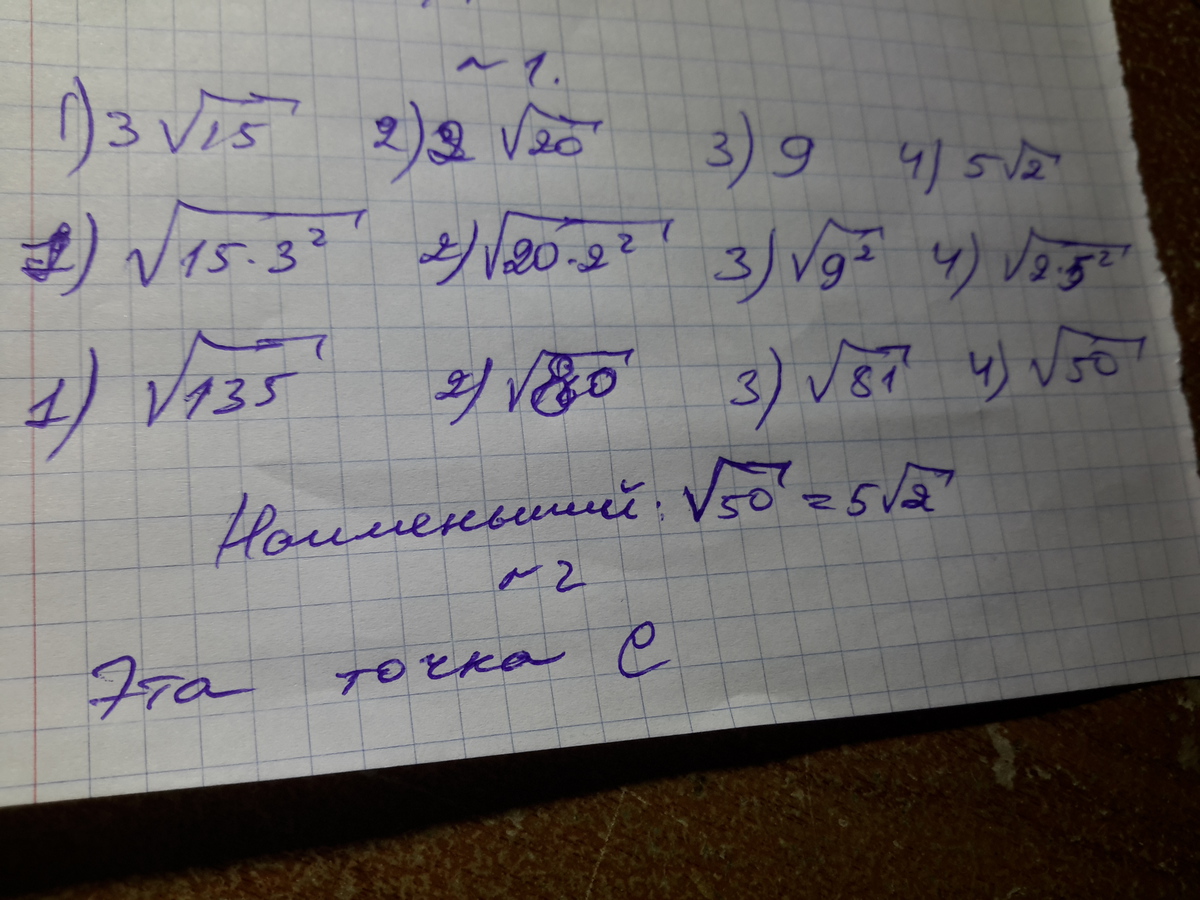 ~ 1.
1) 3 √15 2) 2 √20 3) 9 4) 5√2
1) √15·3² 2) √20·2² 3) √9² 4) √2·5²
1) √135 2) √80 3) √81 4) √50
Наименьший: √50 = 5√2
~ 2
Эта точка C